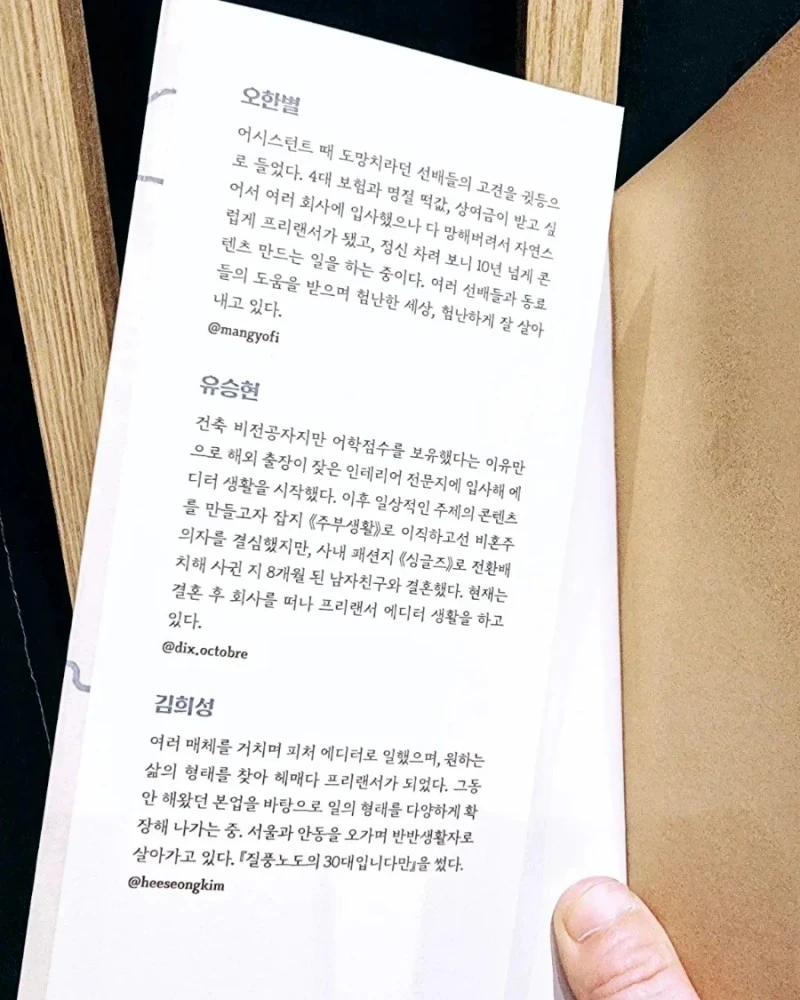 오한별
어시스턴트 때 도망치라던 선배들의 고견을 귓등으
로 들었다. 4대 보험과 명절 떡값, 상여금이 받고 싶
어서 여러 회사에 입사했으나 다 망해버려서 자연스
럽게 프리랜서가 됐고, 정신 차려 보니 10년 넘게 콘
텐츠 만드는 일을 하는 중이다. 여러 선배들과 동료
들의 도움을 받으며 험난한 세상, 험난하게 잘 살아
내고 있다.
@mangyofi
유승현
건축 비전공자지만 어학점수를 보유했다는 이유만
으로 해외 출장이 잦은 인테리어 전문지에 입사해 에
디터 생활을 시작했다. 이후 일상적인 주제의 콘텐츠
를 만들고자 잡지 《주부생활》로 이직하고선 비혼주
의자를 결심했지만, 사내 패션지 《싱글즈》로 전환배
치해 사귄 지 8개월 된 남자친구와 결혼했다. 현재는
결혼 후 회사를 떠나 프리랜서 에디터 생활을 하고
있다.
@dix.octobre
김희성
여러 매체를 거치며 피처 에디터로 일했으며, 원하는
삶의 형태를 찾아 헤매다 프리랜서가 되었다. 그동
안 해왔던 본업을 바탕으로 일의 형태를 다양하게 확
장해 나가는 중. 서울과 안동을 오가며 반반생활자로
살아가고 있다. 『질풍노도의 30대입니다만』을 썼다.
@heeseongkim